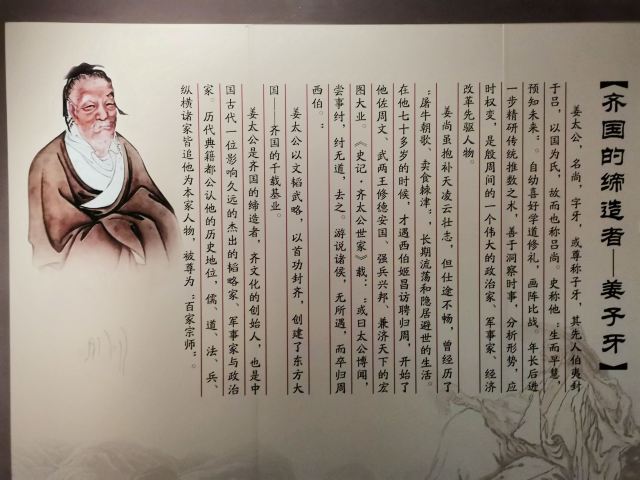 【齐国的缔造者——姜子牙】
姜太公,名尚,字牙,或尊称子牙,其先人伯夷封
于吕,以国为氏,故而也称吕尚。史称他“生而早慧,
预知未来”。自幼喜好学道修礼,画阵比战。年长后进
一步精研传统推数之术,善于洞察时事,分析形势,应
时权变,是殷周间的一个伟大的政治家、军事家、经济
改革先驱人物。
姜尚虽抱补天凌云壮志,但仕途不畅,曾经历了
“屠牛朝歌、卖食棘津”,长期流荡和隐居避世的生活。
在他七十多岁的时候,才遇西伯姬昌访聘归周,开始了
他佐周文、武两王修德安国、强兵兴邦、兼济天下的宏
图大业。《史记·齐太公世家》载:“或曰太公博闻,
尝事纣,纣无道,去之。游说诸侯,无所遇,而卒归周
西伯。”
姜太公以文韬武略,以首功封齐,创建了东方大
国——齐国的千载基业。
姜太公是齐国的缔造者,齐文化的创始人,也是中
国古代一位影响久远的杰出的韬略家、军事家与政治
家。历代典籍都公认他的历史地位,儒、道、法、兵、
纵横诸家皆追他为本家人物,被尊为“百家宗师”。